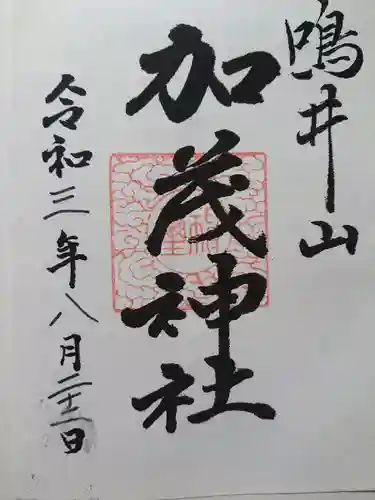 鳴井山
加茂神社
令和三年八月二十二日